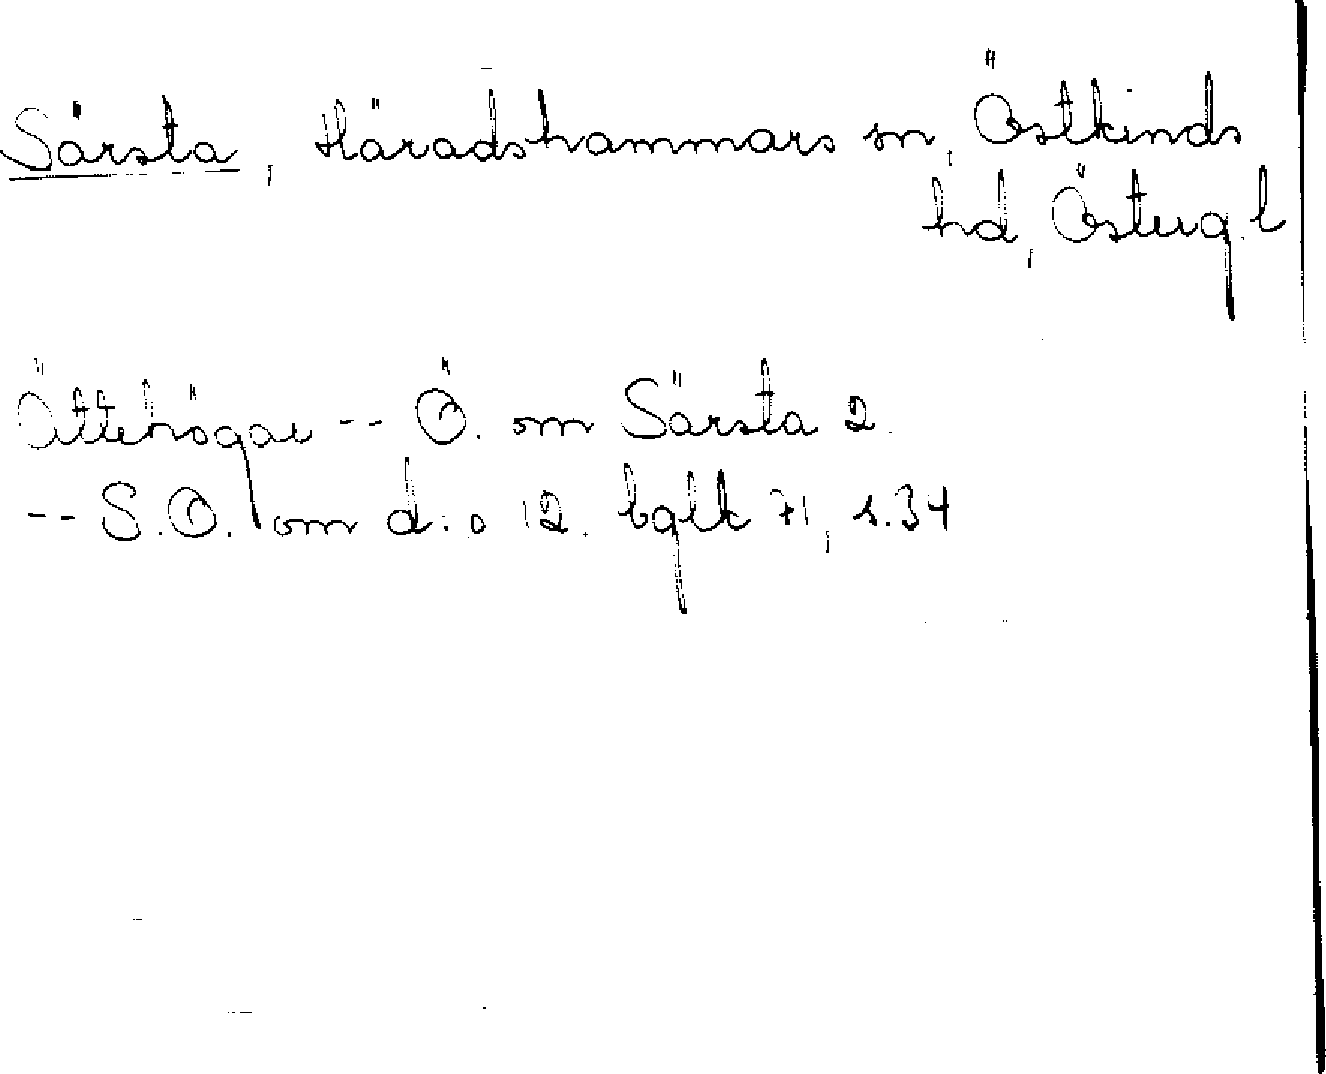 Särsta, Häradshammars sn, Östkinds
hd, Östergl
Ättehögar -- Ö. om Särsta 2.
-- S.Ö. om d:o 12. bglk 71, s.34